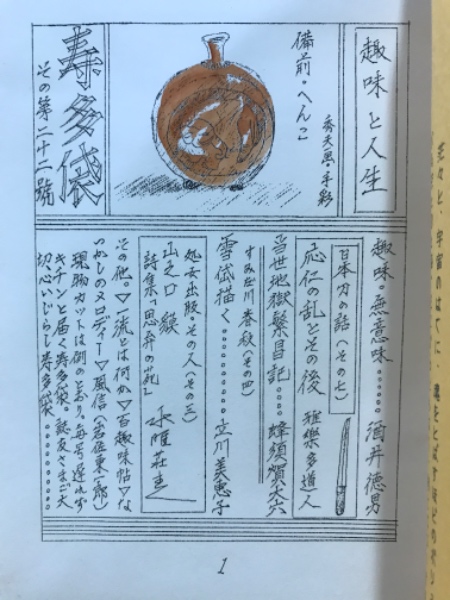 趣味と人生
備前・へんこ
秀天画・手彩
寿多袋
その第二十二號
趣味・無意味・・・・・・酒井徳男
日本刀の話(その七)
応仁の乱とその後 雅樂多道人
当世地獄繁昌記・・・・蜂須賀大穴
すみだ川春秋(その四)
雪岱描く・・・・・・・・立川美恵子
処女出版・その人(その三)
山之口貘
詩集「思弁の苑」 水曜荘主
その他。▽一流とは何か▽百趣味帖▽な
つかしのメロディー▽風信(岩佐東一郎)
現物カットは例のとおり。毎号遅れず
キチンと届く寿多袋。
切
心いじらし寿多袋・・・・・・・・
1